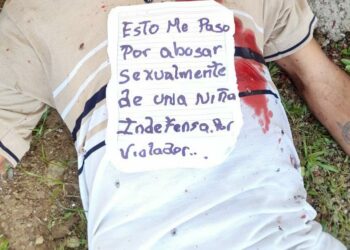 Esto Me Paso
Por abosar
Sexualmente
de una Niña
Indefensa. Por
Violador..